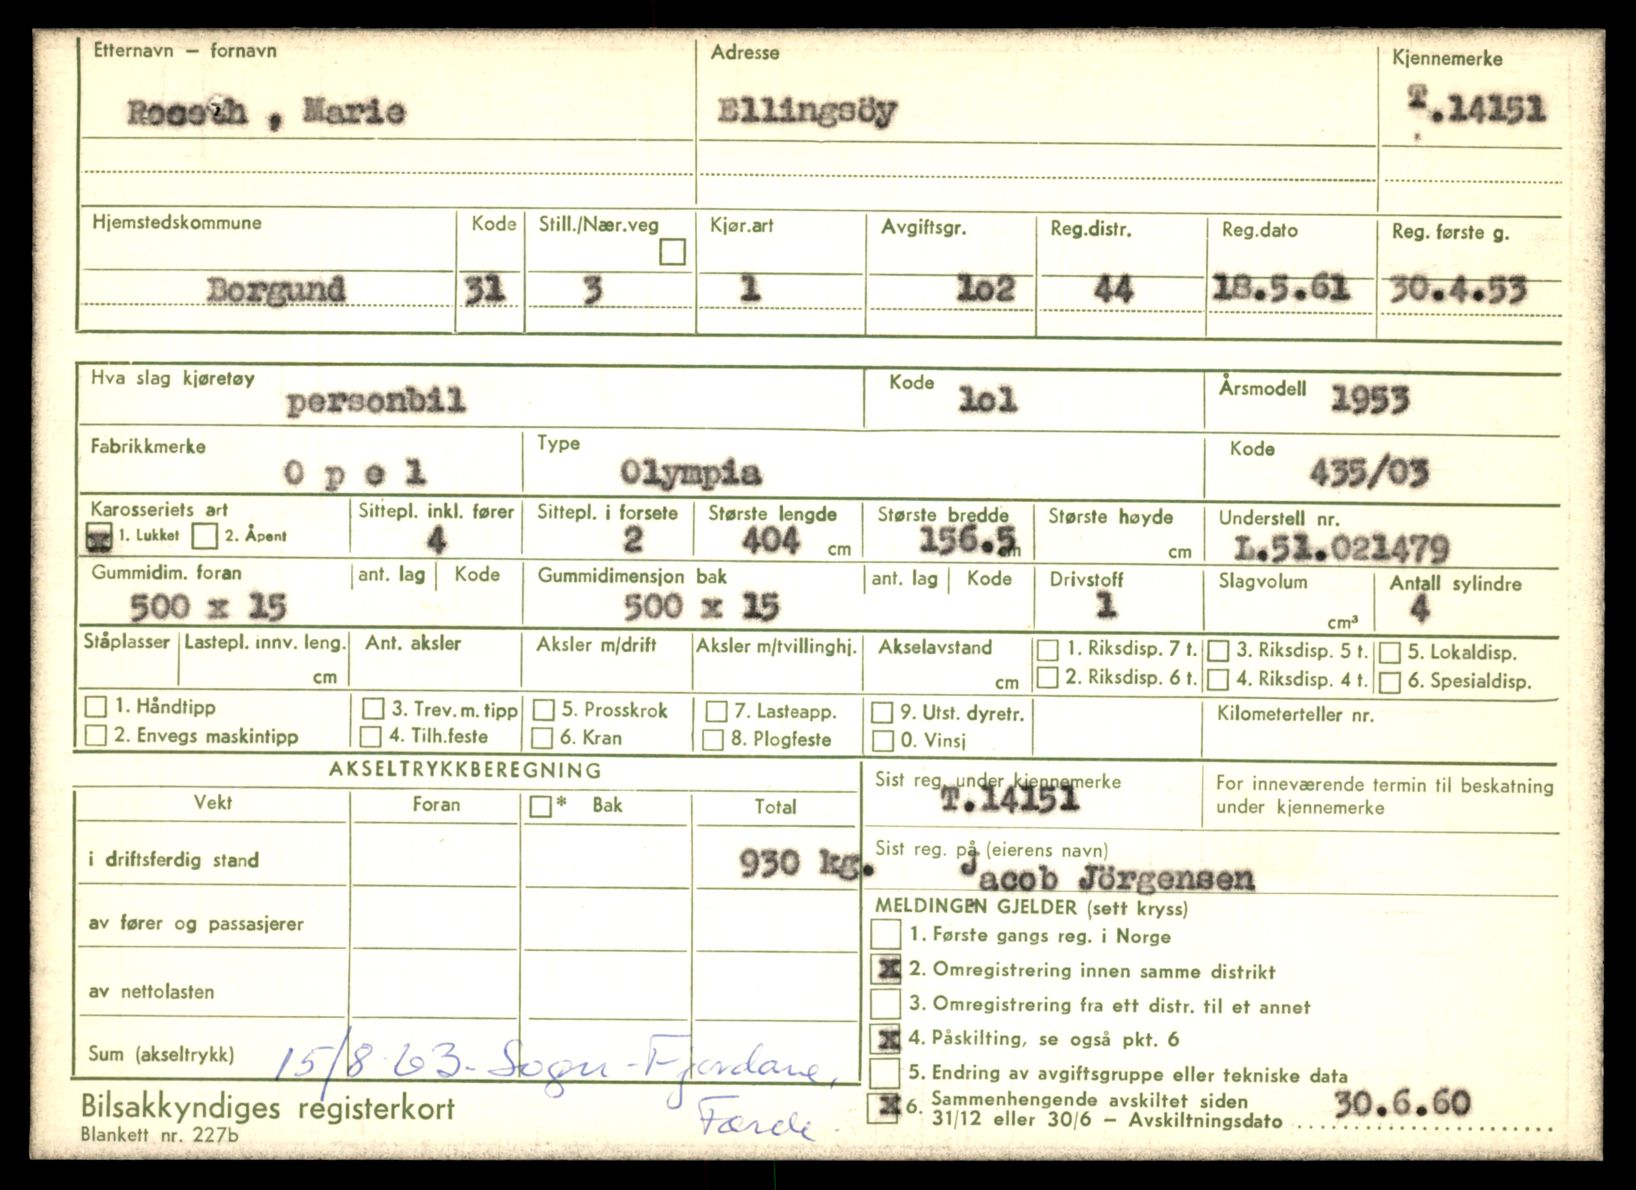 Etternavn – fornavn Adresse Kjennemerke
Roseth, Marie Ellingsöy T.14151
Hjemstedskommune Kode Still./Nær.veg Kjør.art Avgiftsgr. Reg.distr. Reg.dato Reg. første g.
Borgund 31 3 1 1o2 44 18.5.61 30.4.53
Hva slag kjøretøy personbil Kode 1o1 Årsmodell 1953
Fabrikkmerke Type Kode
O p e l Olympia 435/03
Karosseriets art Sittepl. inkl. fører Sittepl. i forsete Største lengde Største bredde Største høyde Understell nr.
x 1. Lukket 2. Åpent 4 2 404 cm 156.5 cm cm L.51.021479
Gummidim. foran ant. lag Kode Gummidimensjon bak ant. lag Kode Drivstoff Slagvolum Antall sylindre
500 x 15 500 x 15 1 cm³ 4
Ståplasser Lastepl. innv. leng. Ant. aksler Aksler m/drift Aksler m/tvillinghj. Akselavstand 1. Riksdisp. 7 t. 3. Riksdisp. 5 t. 5. Lokaldisp.
cm cm 2. Riksdisp. 6 t. 4. Riksdisp. 4 t. 6. Spesialdisp.
1. Håndtipp 3. Trev. m. tipp 5. Prosskrok 7. Lasteapp. 9. Utst. dyretr. Kilometerteller nr.
2. Envegs maskintipp 4. Tilh.feste 6. Kran 8. Plogfeste 0. Vinsj
AKSELTRYKKBEREGNING
Vekt Foran * Bak Total
i driftsferdig stand 930 kg.
av fører og passasjerer
av nettolasten
Sum (akseltrykk) 15/8-63-Sogn-Fjordane,
Førde
Sist reg. under kjennemerke For inneværende termin til beskatning
T.14151 under kjennemerke
Sist reg. på (eierens navn)
Jacob Jörgensen
MELDINGEN GJELDER (sett kryss)
1. Første gangs reg. i Norge
x 2. Omregistrering innen samme distrikt
3. Omregistrering fra ett distr. til et annet
x 4. Påskilting, se også pkt. 6
5. Endring av avgiftsgruppe eller tekniske data
x 6. Sammenhengende avskiltet siden
31/12 eller 30/6 – Avskiltningsdato 30.6.60
Bilsakkyndiges registerkort
Blankett nr. 227b